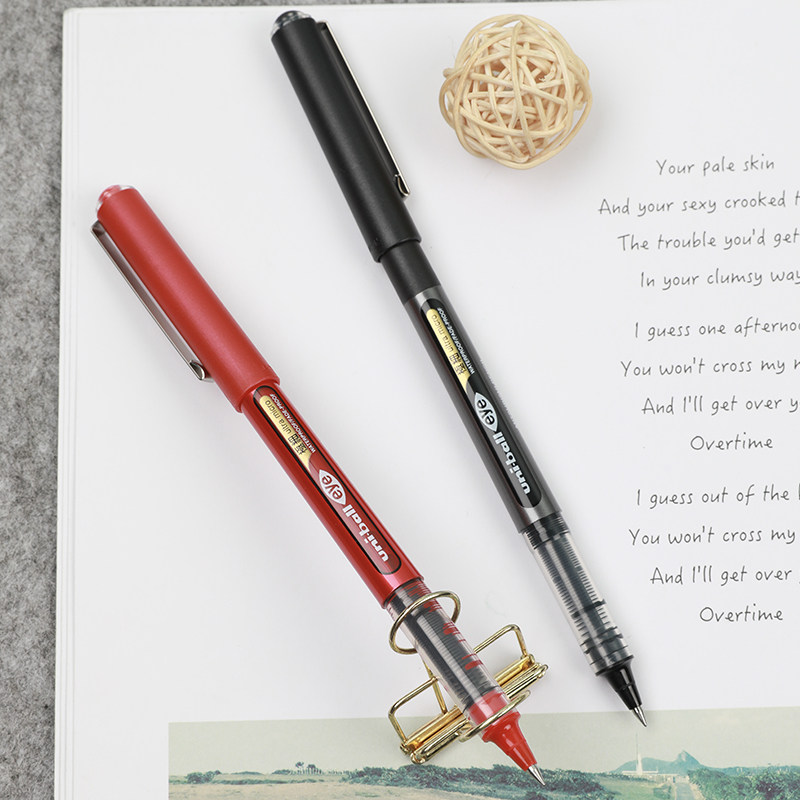 Your pale skin
And your sexy crooked t
The trouble you'd get
In your clumsy way
I guess one afterno
You won't cross my m
And I'll get over y
Overtime
I guess out of the l
You won't cross my
And I'll get over
Overtime
uni-ball eye
ultra micro
WATERPROOF/FADE-PROOF
uni-ball eye
ultra micro
WATERPROOF/FADE-PROOF